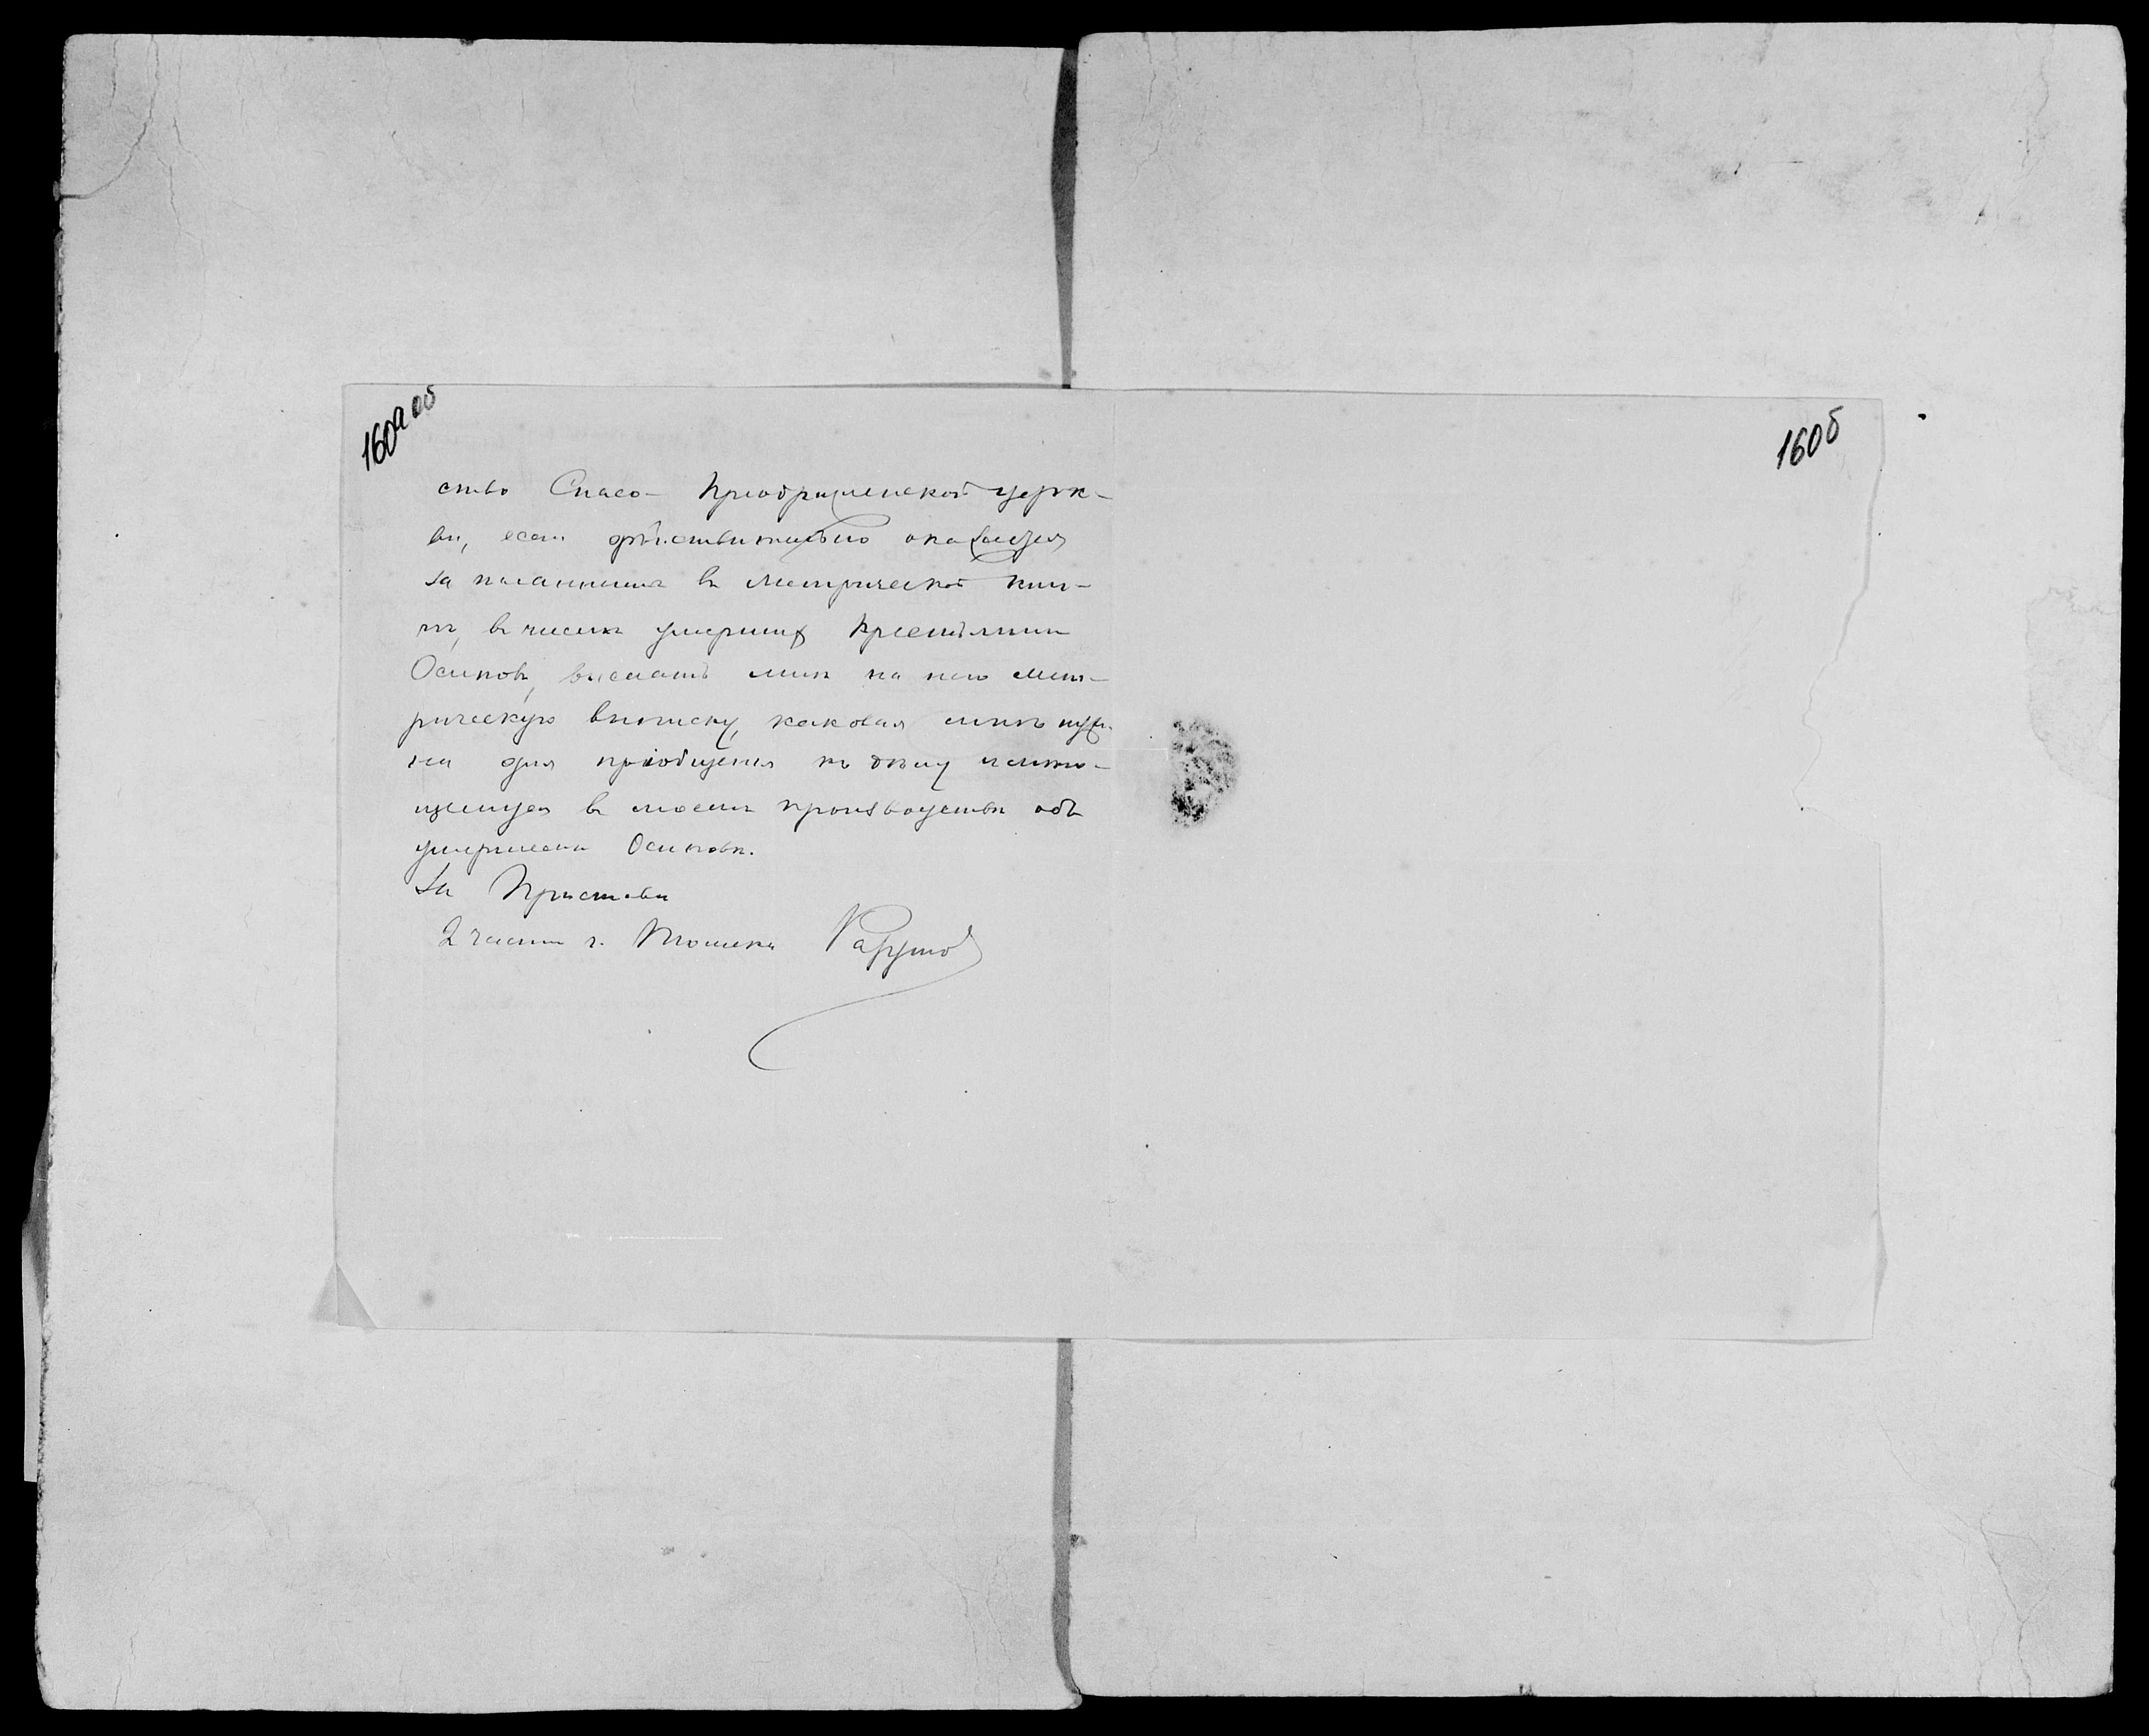 160а об
160б
ство Спасо- Преображенской церк-
ви, если действительно окажется
записаннымъ въ метрической кни-
ги, въ числѣ умершихъ крестьянин
Осиповъ, выслать мнѣ на него мет-
рическую выписку, каковая мнѣ нуж-
на для пріобщенія къ дѣлу имѣю-
щемуся въ моемъ производствѣ объ
умершемъ Осиповѣ.
За Пристава
2 части г.